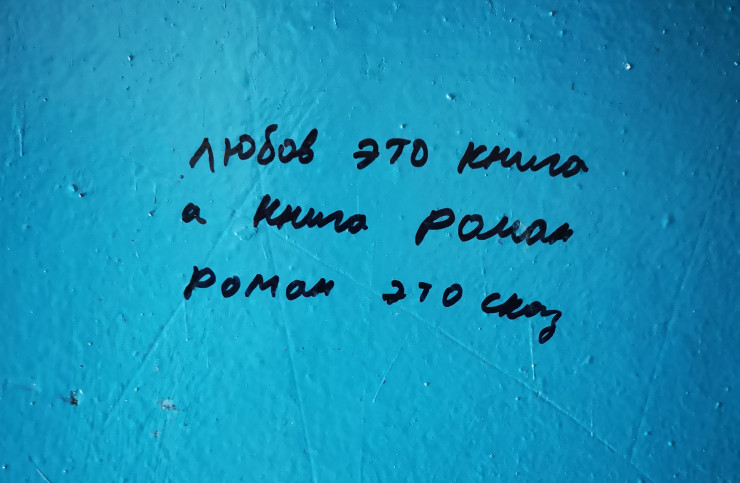 любов это книга
а книга роман
роман это сказ